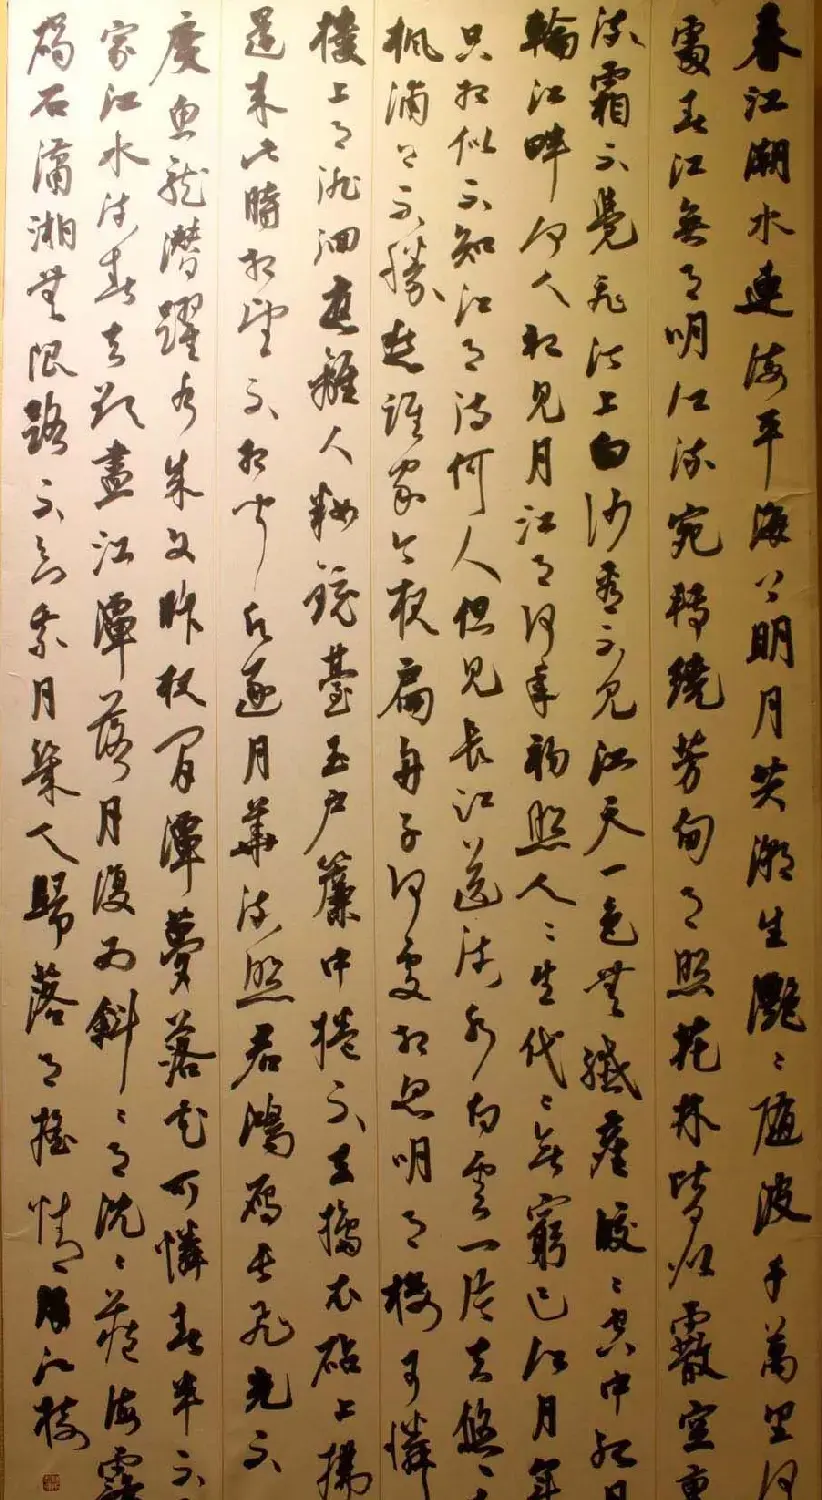 春江潮水連海平海上明月共潮生灩〻隨波千萬里何
處春江無月明江流宛轉繞芳甸月照花林皆似霰空裏
流霜不覺飛汀上白沙看不見江天一色無纖塵皎〻空中孤月
輪江畔何人初見月江月何年初照人〻生代〻無窮已江月年
只相似不知江月待何人但見長江送流水白雲一片去悠〻
楓浦上不勝愁誰家今夜扁舟子何處相思明月樓可憐
樓上月徘徊應離人粧鏡臺玉户簾中捲不去擣衣砧上拂
還來此時相望不相聞願逐月華流照君鴻雁長飛光不
度魚龍潛躍水成文昨夜閒潭夢落花可憐春半不
家江水流春去欲盡江潭落月復西斜〻月沈〻藏海霧
碣石瀟湘無限路不知乘月幾人歸落月搖情滿江樹